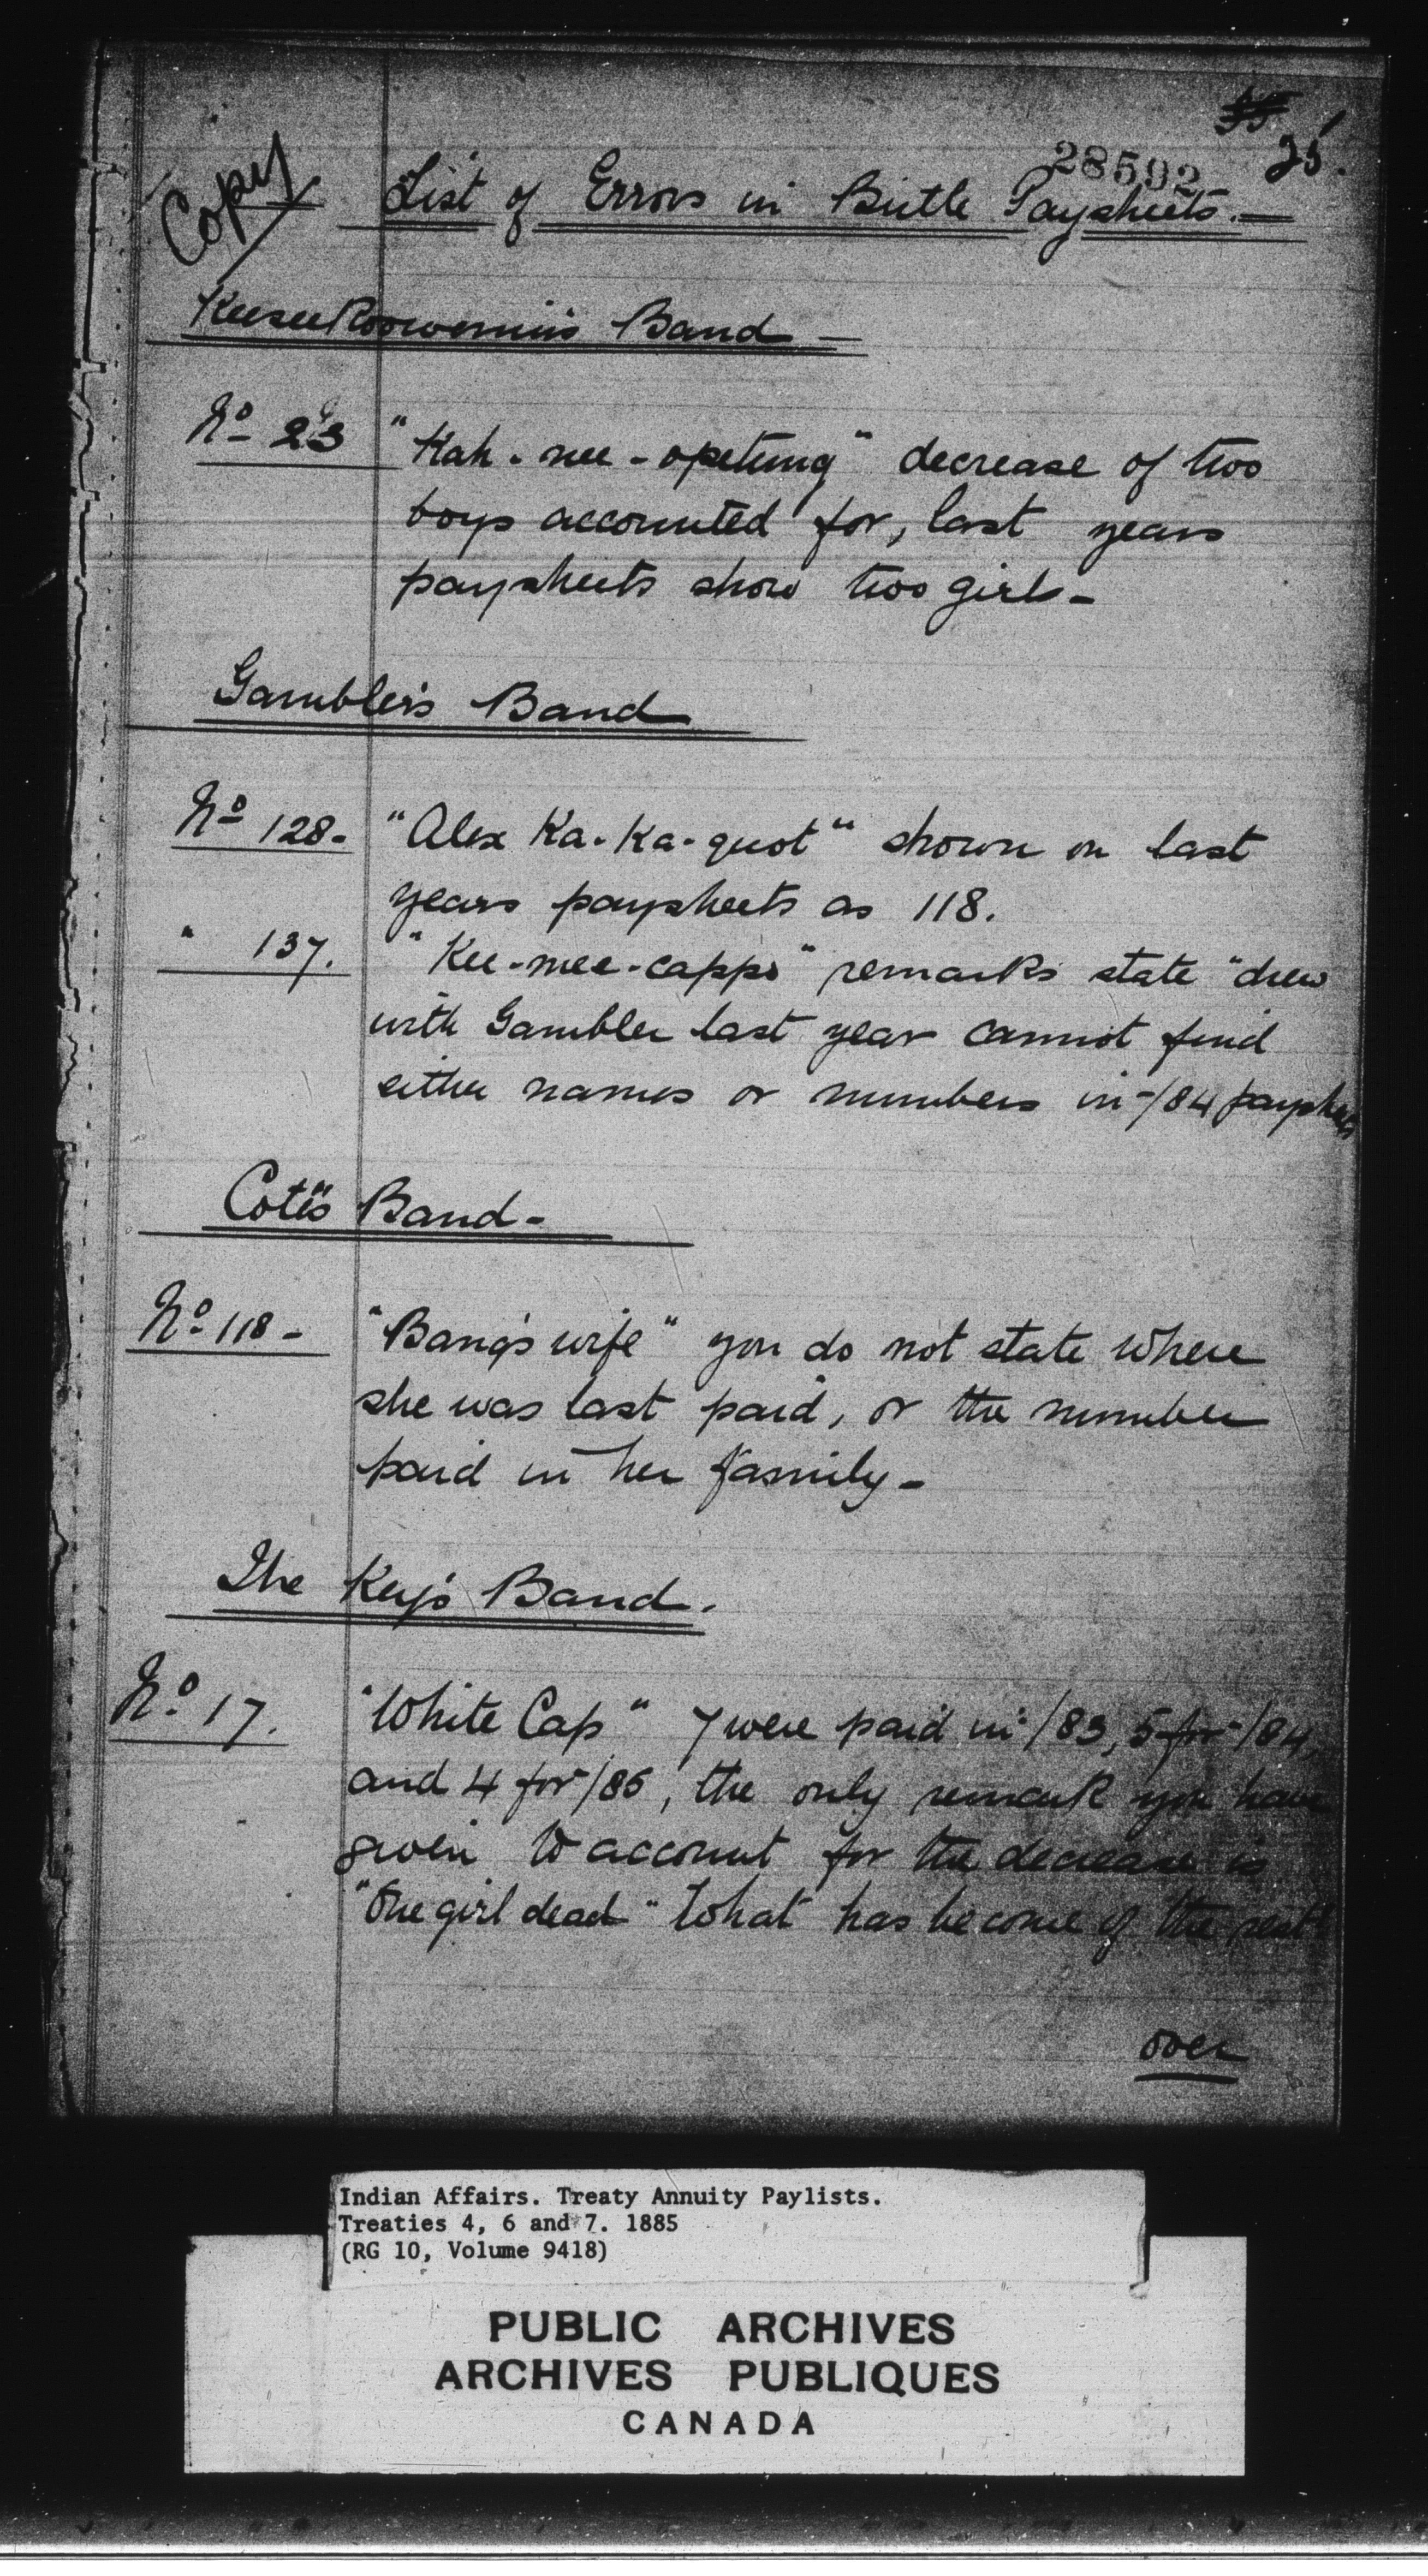 25.
28592
Copy
List of Errors in Birtle Paysheets.—
KeeseeKoowenin's Band —
No 23 "Kah-nee-opetung" decrease of two
boys accounted for, last years
paysheets show two girls-
Gambler's Band
No 128- "Alex Ka-Ka-quot" shown on last
years paysheets as 118.
" 137. "Kee-mee-capps" remarks state "drew
with Gambler last year cannot find
either names or numbers in -/84 paysheets
Coté's Band-
No 118- "Bang's wife" you do not state where
she was last paid, or the number
paid in her family-
The Key's Band.
No 17. "White Cap" 7 were paid in /83, 5 for /84,
and 4 for /85, the only remark you have
given to account for the decrease is
"One girl dead" What has become of the rest?
over
Indian Affairs. Treaty Annuity Paylists.
Treaties 4, 6 and 7. 1885
(RG 10, Volume 9418)
PUBLIC ARCHIVES
ARCHIVES PUBLIQUES
CANADA